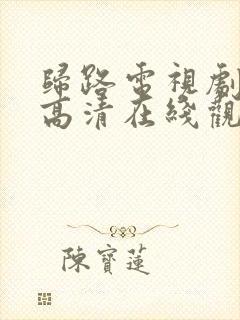 歸路電視劇
高清在綫觀
陳寶蓮